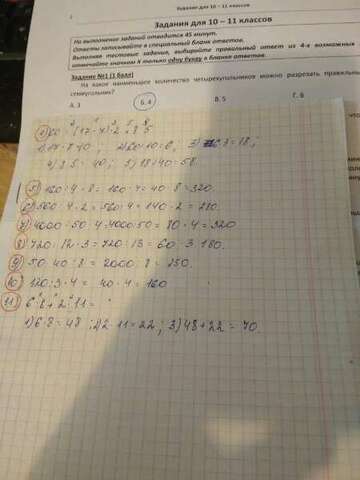 Задания для 10 – 11 классов
Задания для 10 – 11 классов
На выполнение заданий отводится 45 минут.
Ответы записывайте в специальный бланк ответов.
Выполняя тестовые задания, выбирайте правильный ответ из 4-х возможных
отмечайте значком X только одну букву в бланке ответов.
Задание №1 (1 балл)
На какое наименьшее количество четырехугольников можно разрезать правильный
семиугольник?
А. 3 Б. 4 В. 5 Г. 6
4) 35 = 40; 5) 18+40=58
5) 160:4·8=160:4=40·8=320
6) 560:4·2=560:4=140·2=280.
7) 4000:50·4=4000:50=80·4=320
8) 720:12·3=720:12=60·3=180.
9) 50·40:8=2000:8=250.
10) 120:3·4=40·4=160
11) 6·8+2·11=
1) 6·8=48; 2) 2·11=22; 3) 48+22=70.